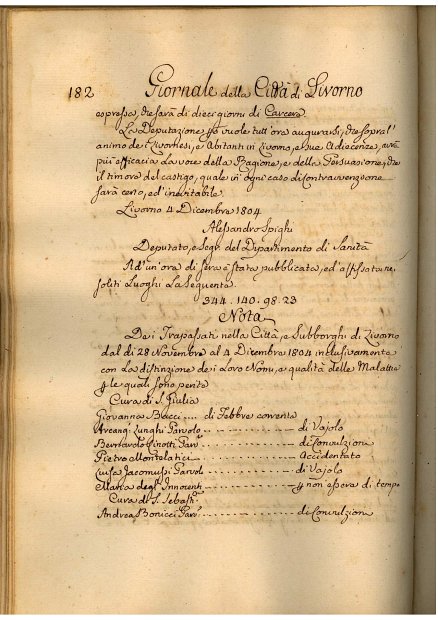 182 Giornale della Città di Livorno
espressa, che sarà di dieci giorni di Carcere
La Deputazione vuole tutt'ora augurarsi, che sopra l'
animo dei Livornesi, e Abitanti in Livorno, e sue Adiacenze, avrà
più efficacia la voce della Ragione, e della Persuasione, che
il timore del castigo, quale in ogni caso di Contravvenzione
sarà certo, ed inevitabile
Livorno 4 Dicembre 1804
Alessandro Spighi
Deputato, e Segr. del Dipartimento di Sanità
Ad un'ora di sera è stata pubblicata, ed affissata ne
soliti Luoghi La Seguente
344. 140. 98. 23
Nota
Dei Trapassati nella Città, e Subborghi di Livorno
dal dì 28 Novembre al 4 Dicembre 1804 inclusivamente
con La distinzione dei Loro Nomi, e qualità delle Malattie
p le quali sono periti
Cura di S. Giulia
Giovanna Bacci .... di Febbre corrente
Arcang. Lunghi Parvolo ---- di Vajolo
Bernardo Ginotti Parv. ---- di Convulzioni
Pietro Montelatici ---- Accidentato
Luisa Jacomussi Parvol ---- di Vajolo
Maria degl' Innocenti ---- p non essera di tempo
Cura di S. Sebast.
Andrea Bonicci Parv. ---- di Convulzioni